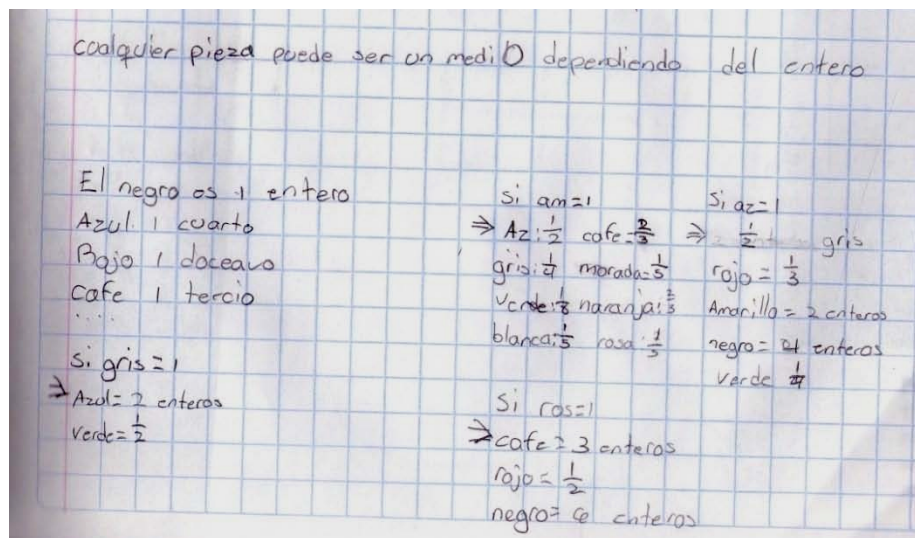 cualquier pieza puede ser un mediO dependiendo del entero
El negro es 1 entero
Azul 1 cuarto
Rojo 1 doceavo
cafe 1 tercio
....
Si gris=1
⇒ Azul= 2 enteros
verde= 1/2
Si am=1
⇒ Az: 1/2 cafe= 2/3
gris: 1/4 morada= 1/5
verde: 1/8 naranja: 2/5
blanca: 1/5 rosa: 1/3
Si ros=1
⇒ cafe= 3 enteros
rojo= 1/2
negro= enteros
Si az=1
⇒ 1/2 gris
rojo = 1/3
Amarillo = 2 enteros
negro= 4 enteros
verde 1/4